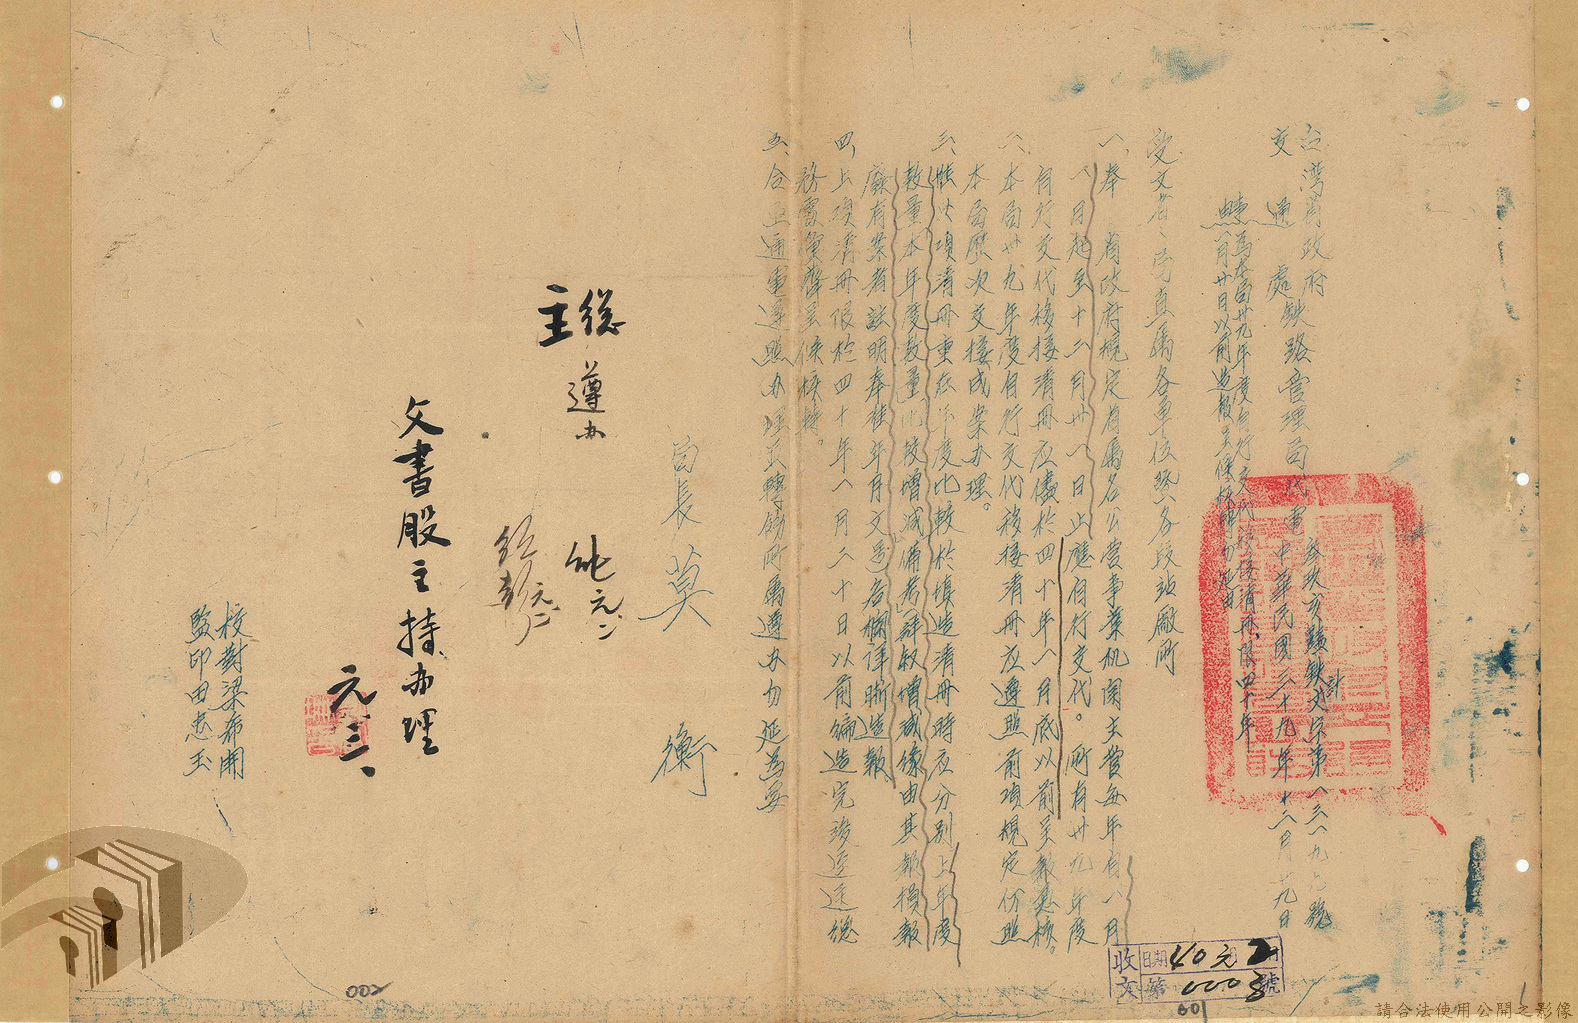 台灣省政府
交通處鉄路管理局代電
參玖亥豔鉄計丈宗第一三一九九號
中華民國三十九年十二月廿九日
事由 為本局卅九年度自行交代移接清冊限四十年
一月廿日以前造報呈候核轉勿延由
受文者、局直屬各單位暨各段站廠所
一、奉省政府規定省屬各公營事業机関主管每年自一月
一月起至十二月卅一日止應自行交代。所有卅九年度
自行交代移接清冊应儘於四十年一月底以前呈報悬核。
二、本局卅九年度自行交代移接清冊应遵照前項規定份照
本局歷次交接成案办理。
三、賬次項清冊重在年度比較於填造清冊時应分別上年度
數量本年度數量比較增減備考詳叙增減緣由其報損報
廢有案者註明奉准年月文号各欄详晰造報
四、上項清冊限於四十年一月二十日以前編造完竣逕送總
務處彙齊呈候核轉。
五、合亟通電遵照办理並轉飭所屬遵办勿延為要
局長 莫 衡
總
主
遵办
元、二
元、二
文書股主持办理
元、三、
校對梁希開
監印田志玉
收文
日期 40 元月 2 日
第 0003 號
001
002
請合法使用公開之影像